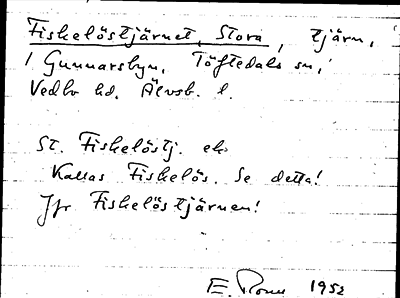 Fiskelöstjärnet, Stora, tjärn,
i Gunnarsbyn, Töftedals sn,
Vedbo hd. Älvsb. l.
St. Fiskelöstj. ek
Kallas Fiskelös. Se detta!
Jfr Fiskelöstjärnen!
E. 1952